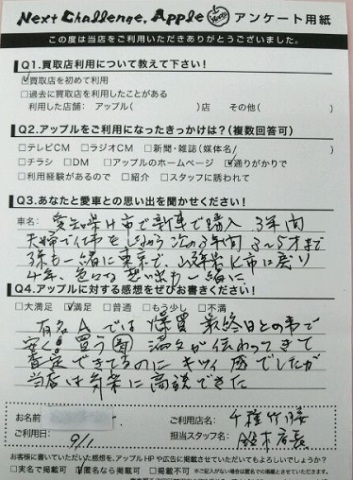 Next Challenge, Apple アンケート用紙
この度は当店をご利用いただきありがとうございました。
Q1.買取店利用について教えて下さい!
☑買取店を初めて利用
□過去に買取店を利用したことがある
利用した店舗: アップル( )店 その他( )
Q2.アップルをご利用になったきっかけは?(複数回答可)
□テレビCM □ラジオCM □新聞・雑誌(媒体名/ )
□チラシ □DM □アップルのホームページ ☑通りがかりで
□利用経験があるので □紹介 □スタッフに誘われて
Q3.あなたと愛車との思い出を聞かせください!
車名: 愛知県 市で新車で購入 3年間
夫婦で仕事をしながら次の3年間 3~5才まで
孫も一緒に東京で、 K市に戻り
4年、色々の思い出も一緒に
Q4.アップルに対する感想をぜひお書きください!
□大満足 ☑満足 □普通 □もう少し □不満
有名Aでは 爆買 最終日との事で
安く買う 満々が伝わってきて
査定できてるのに キツイ感でしたが
当店は 商談できた
お名前
ご利用日: 9/1
ご利用店名: 千種竹越
担当スタッフ名: 鈴木
お客様に書いていただいた感想を、アップルHPや広告に掲載させていただいてもよろしいでしょうか?
□実名で掲載可 ☑匿名なら掲載可 □掲載不可 ※ご記入がない場合は匿名での掲載とさせていただきます。